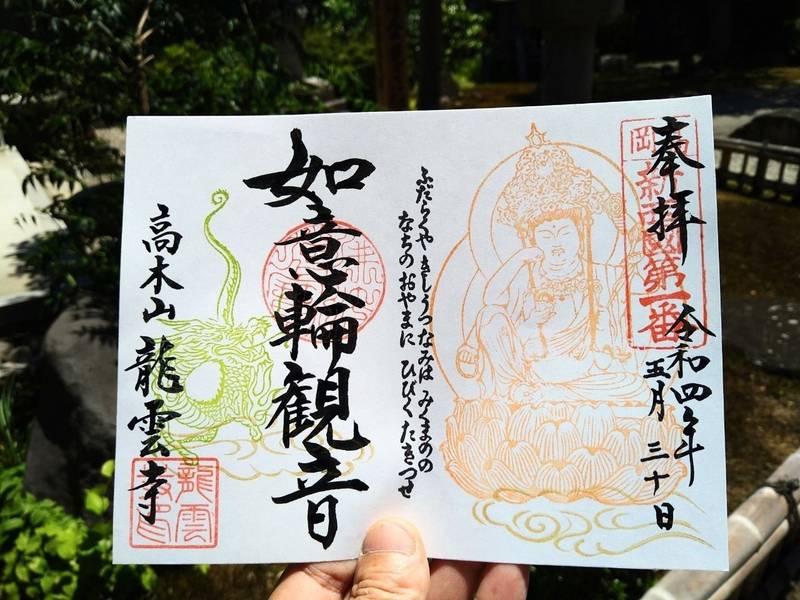 奉拝
岡新西國第一番
令和四年
五月三十日
ふだらくや きしうつなみは みくまのの
なちの おやまに ひびく たきつせ
如意輪観音
高木山 龍雲寺
龍雲